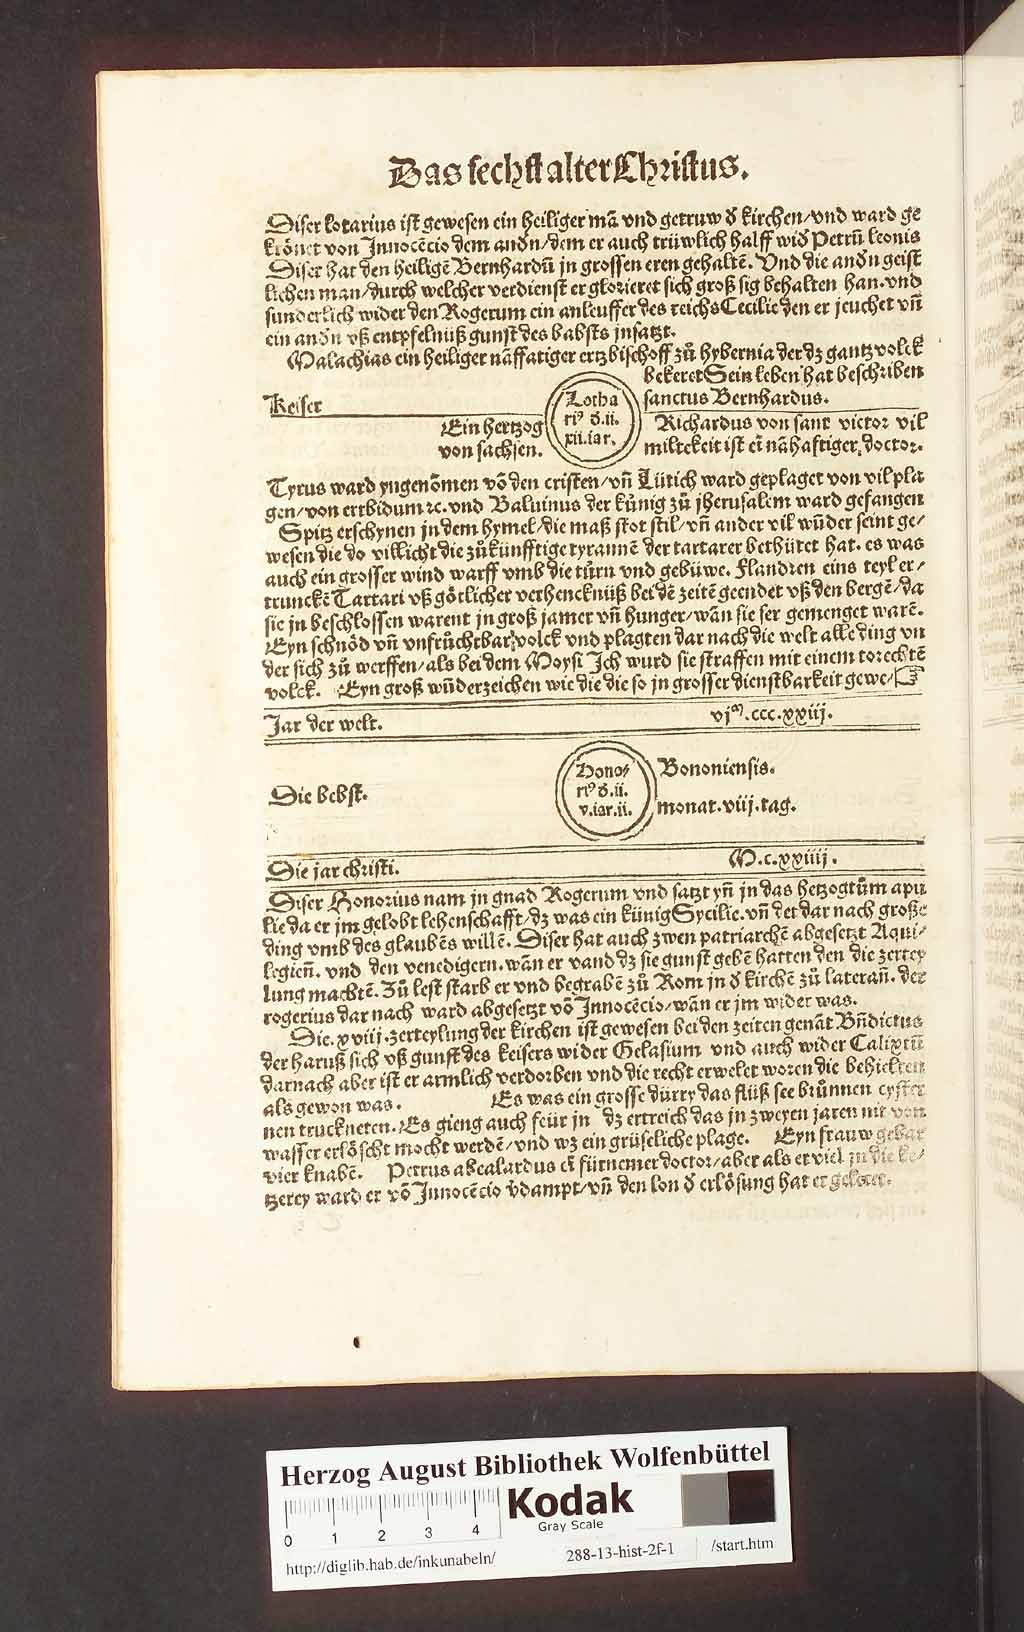 Das sechst alter Christus.
Diser lotarius ist gewesen ein heiliger mā vnd getruw ð kirchen/vnd ward ge
krönet von Innocēcio dem andn/dem er auch trüwlich halff wið Petrū leonis
Diser hat den heiligē Bernhardū jn grossen eren gehaltē. Vnd die andn geist
lichen man/durch welcher verdienst er glorieret sich groß sig behalten han. vnd
sunderlich wider den Rogerum ein anleuffer des reichs Cecilie den er jeuchet vñ
ein andn vß entpfelnüß gunst des babsts jnsatzt.
Malachias ein heiliger nāffatiger ertzbischoff zů hybernia der dz gantz volck
bekeret Sein leben hat beschriben
sanctus Bernhardus.
Keiser
Lotha
riꝰ ð.ii.
xii.iar.
Ein hertzog
von sachsen.
Richardus von sant victor vil
miltekeit ist eī nāhaftiger doctor.
Tyrus ward yngenōmen vō den cristen/vñ Lütich ward geplaget von vil pla
gen/von ertbidum ꝛc. vnd Baluinus der künig zů jherusalem ward gefangen
Spitz erschynen jn dem hymel/die maß stot stil/vñ ander vil wūder seint ge/
wesen die do villicht die zůkünfftige tyrannē der tartarer bethütet hat. es was
auch ein grosser wind warff vmb die türn vnd gebüwe. Flandren eins teyl er/
trunckē Tartari vß götlicher verhencknüß bei dē zeitē geendet vß den bergē/da
sie jn beschlossen warent jn groß jamer vñ hunger/wān sie ser gemenget warē.
Eyn schnöd vñ vnfrůchtbar volck vnd plagten dar nach die welt alle ding vn
der sich zů werffen/als bei dem Moysi Ich wurd sie straffen mit einem torechtē
volck. Eyn groß wūderzeichen wie die die so jn grosser dienstbarkeit gewe/☞
Jar der welt. vjᵐ.ccc.xxiij.
Die bebst.
Hono/
riꝰ ð.ii.
v.iar.ii.
Bononiensis.
monat.viij.tag.
Die jar christi. M.c.xxiiij.
Diser Honorius nam jn gnad Rogerum vnd satzt yñ jn das hetzogtům apu
lie da er jm gelobt lehenschafft/dz was ein künig Sycilie. vñ det dar nach große
ding vmb des glaubēs willē. Diser hat auch zwen patriarchē abgesetzt Aqui/
legieñ. vnd den venedigern. wān er vand dz sie gunst gebē hatten den die zertey
lung machtē. Zů lest starb er vnd begrabē zů Rom jn ð kirchē zů laterañ. der
rogerius dar nach ward abgesetzt vō Innocēcio/wān er jm wider was.
Die.xviij.zerteylung der kirchen ist gewesen bei den zeiten genāt Bñdictus
der haruß sich vß gunst des keisers wider Gelasium vnd auch wider Calixtū
darnach aber ist er armlich verdorben vnd die recht erwelet woren die behielten
als gewon was. Es was ein grosse dürry das flüß see brůnnen cyster
nen truckneten. Es gieng auch feür jn dz ertreich das jn zweyen jaren nit von
wasser erlöscht mocht werdē/vnd wz ein grüseliche plage. Eyn frauw gebar
vier knabē. Petrus abealardus eī fürnemer doctor/aber als er viel jn die ke/
tzerey ward er vō Innocēcio v̄dampt/vñ den lon ð erlösung hat er geleret.
Herzog August Bibliothek Wolfenbüttel
0 1 2 3 4
Kodak
Gray Scale
http://diglib.hab.de/inkunabeln/ 288-13-hist-2f-1 /start.htm